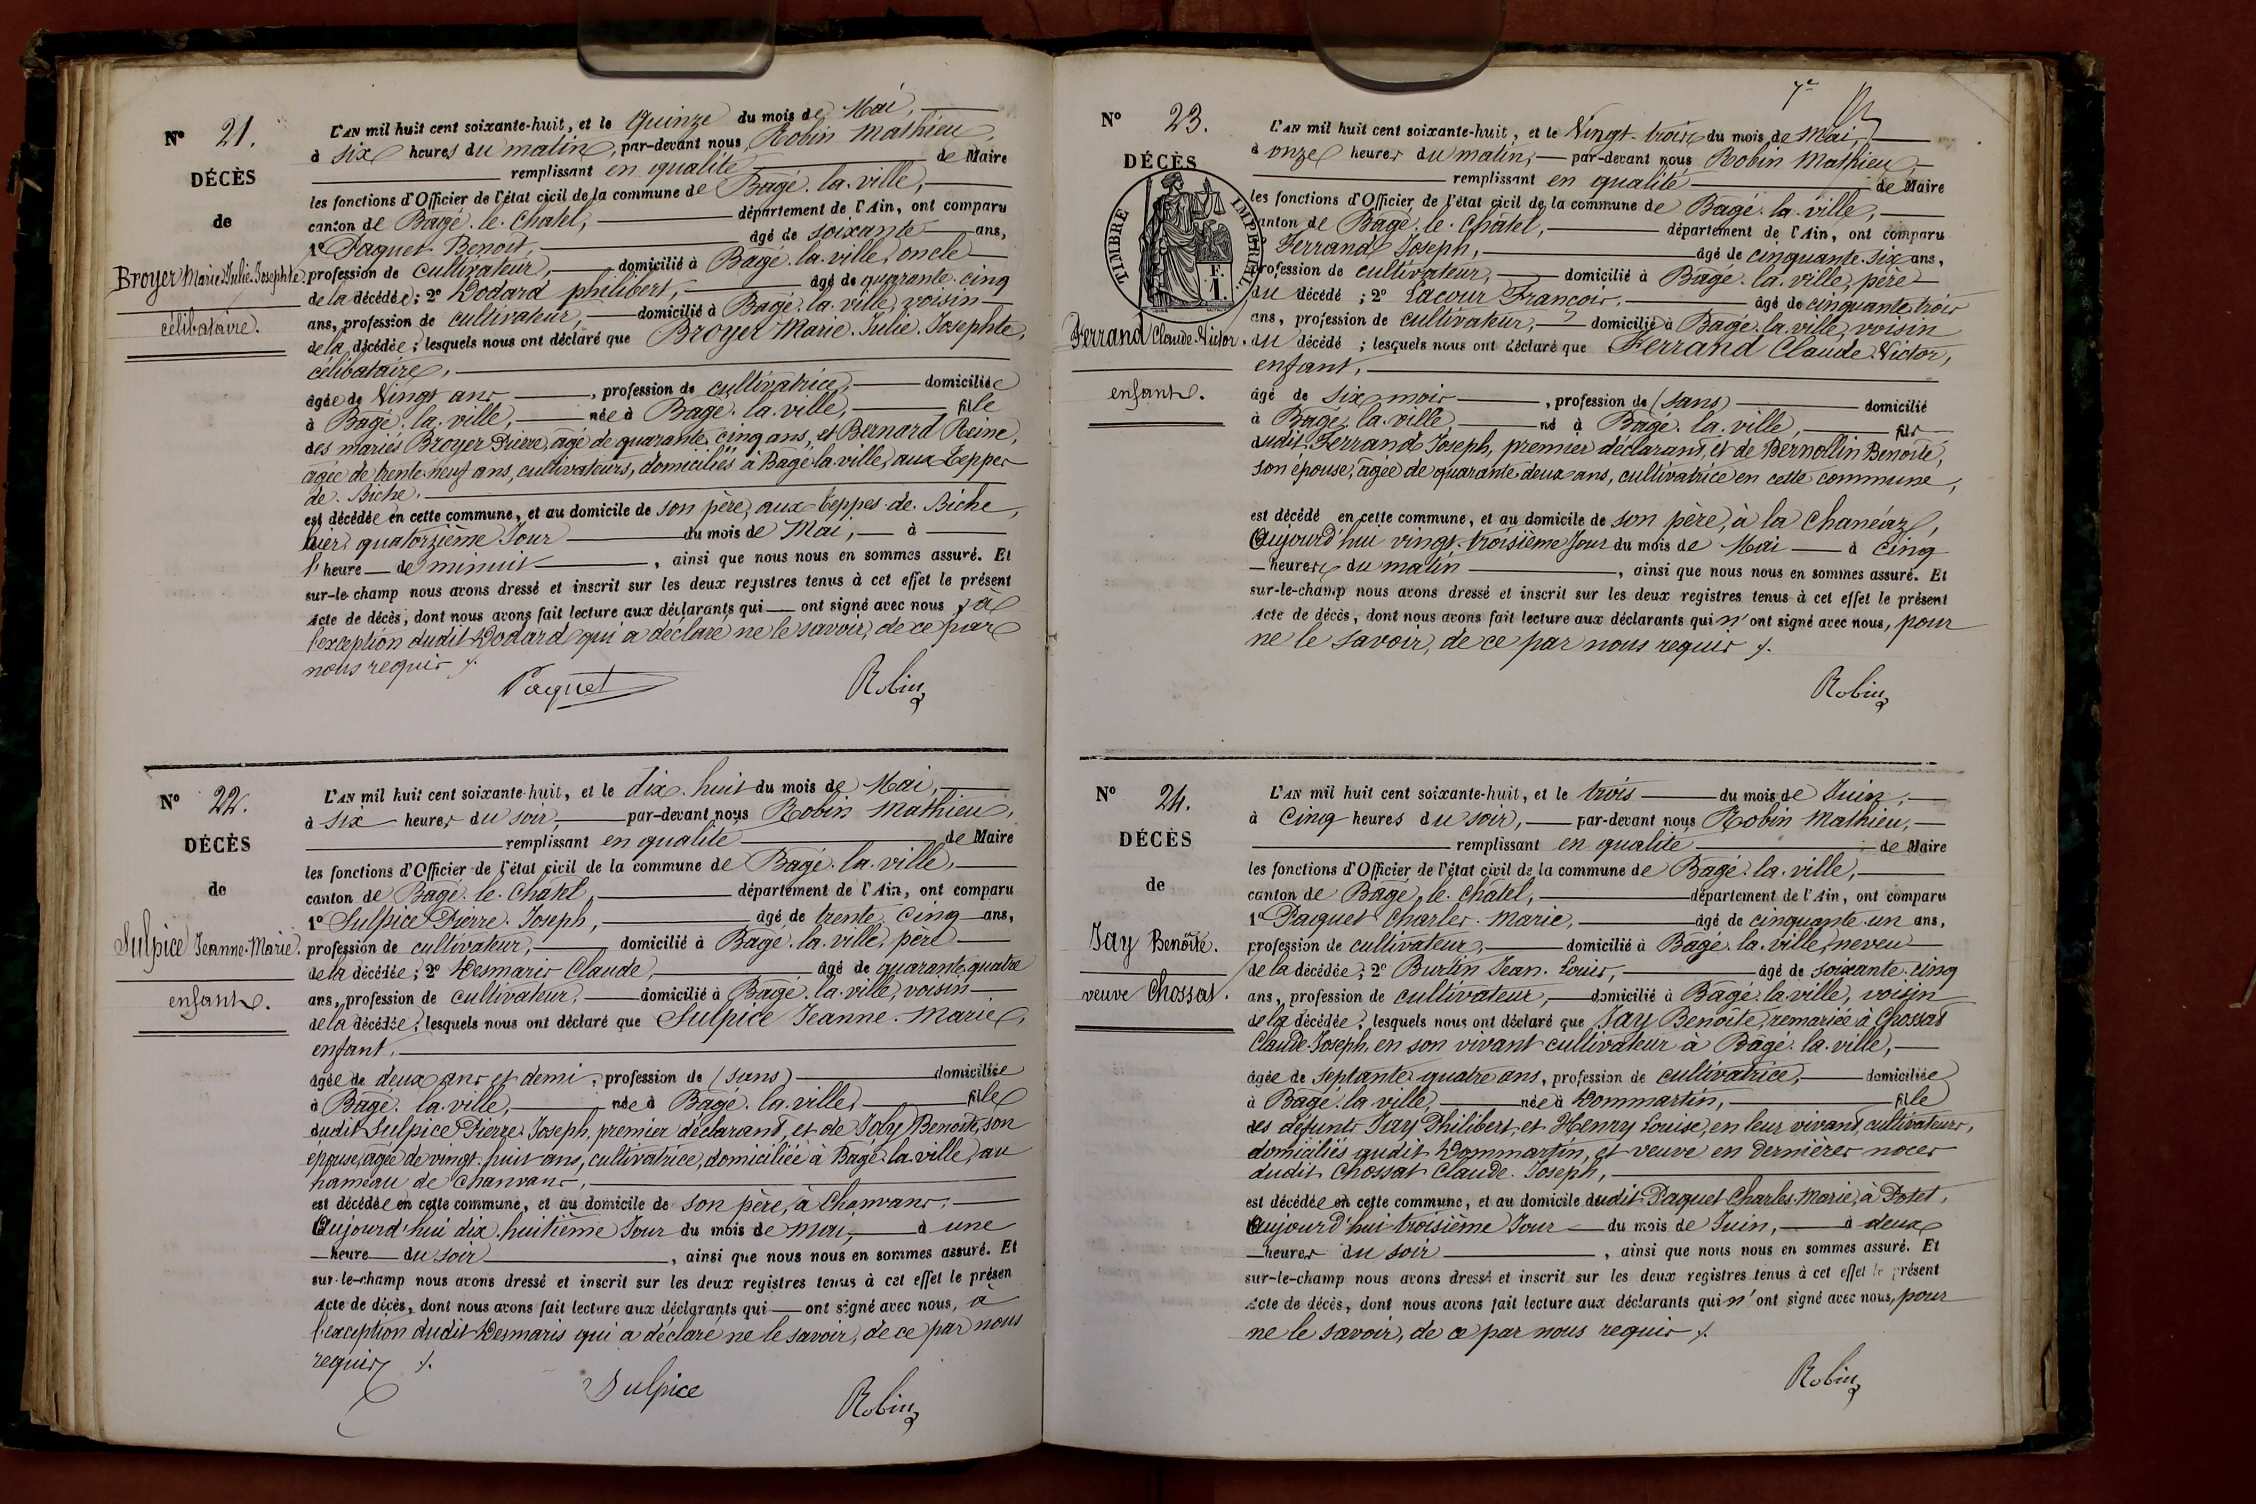 N° 21.
DÉCÈS
de
Broyer Marie Julie Josephte.
célibataire.
L'AN mil huit cent soixante-huit, et le Quinze du mois de Mai,
à six heures du matin, par-devant nous Robin Mathieu,
remplissant en qualité de Maire
les fonctions d'Officier de l'état civil de la commune de Bagé-la-ville,
canton de Bagé-le-Chatel, département de l'Ain, ont comparu
1° Paquet Benoit, âgé de soixante ans,
profession de cultivateur, domicilié à Bagé-la-ville, oncle
de la décédée; 2° Dodard philibert, âgé de quarante-cinq
ans, profession de cultivateur, domicilié à Bagé-la-ville, voisin
de la décédée; lesquels nous ont déclaré que Broyer Marie-Julie-Josephte,
célibataire,
âgée de Vingt ans, profession de cultivatrice, domiciliée
à Bagé-la-ville, née à Bagé-la-ville, fille
des mariés Broyer Pierre, âgé de quarante-cinq ans, et Bernard Reine,
âgée de trente-neuf ans, cultivateurs, domiciliés à Bagé-la-ville, aux Teppes
de Biche,
est décédée en cette commune, et au domicile de son père, aux teppes-de-Biche,
hier, quatorzième Jour du mois de Mai, à
l'heure de minuit, ainsi que nous nous en sommes assuré. Et
sur-le-champ nous avons dressé et inscrit sur les deux registres tenus à cet effet le présent
Acte de décès, dont nous avons fait lecture aux déclarants qui ont signé avec nous, à
l'exception dudit Dodard qui a déclaré ne le savoir, de ce par
nous requis ./.
Paquet Robin
N° 22.
DÉCÈS
de
Sulpice Jeanne-Marie.
enfant.
L'AN mil huit cent soixante-huit, et le dix-huit du mois de Mai,
à six heures du soir, par-devant nous Robin Mathieu,
remplissant en qualité de Maire
les fonctions d'Officier de l'état civil de la commune de Bagé-la-ville,
canton de Bagé-le-Chatel, département de l'Ain, ont comparu
1° Sulpice Pierre-Joseph, âgé de trente-cinq ans,
profession de cultivateur, domicilié à Bagé-la-ville, père
de la décédée; 2° Desmaris Claude, âgé de quarante-quatre
ans, profession de cultivateur, domicilié à Bagé-la-ville, voisin
de la décédée; lesquels nous ont déclaré que Sulpice Jeanne-Marie,
enfant,
âgée de deux ans et demi, profession de (sans) domiciliée
à Bagé-la-ville, née à Bagé-la-ville, fille
dudit Sulpice Pierre-Joseph, premier déclarant, et de Benoîte, son
épouse, âgée de vingt-huit ans, cultivatrice, domiciliée à Bagé-la-ville, au
hameau de Chanvans,
est décédée en cette commune, et au domicile de son père, à Chanvans,
Aujourd'hui dix-huitième Jour du mois de mai, à une
heure du soir, ainsi que nous nous en sommes assuré. Et
sur-le-champ nous avons dressé et inscrit sur les deux registres tenus à cet effet le présen
Acte de décès, dont nous avons fait lecture aux déclarants qui ont signé avec nous, à
l'exception dudit Desmaris qui a déclaré ne le savoir, de ce par nous
requis ./.
Sulpice Robin
N° 23.
DÉCÈS
TIMBRE IMPÉRIAL
Ferrand Claude-Victor.
enfant.
L'AN mil huit cent soixante-huit, et le Vingt-trois du mois de Mai,
à onze heures du matin, par-devant nous Robin Mathieu,
remplissant en qualité de Maire
les fonctions d'Officier de l'état civil de la commune de Bagé-la-ville,
canton de Bagé-le-Châtel, département de l'Ain, ont comparu
Ferrand Joseph, âgé de cinquante-six ans,
profession de cultivateur, domicilié à Bagé-la-ville, père
du décédé; 2° Lacour François, âgé de cinquante-trois
ans, profession de cultivateur, domicilié à Bagé-la-ville, voisin
du décédé; lesquels nous ont déclaré que Ferrand Claude-Victor,
enfant,
âgé de six mois, profession de (sans) domicilié
à Bagé-la-ville, né à Bagé-la-ville, fils
dudit Ferrand Joseph, premier déclarant, et de Bernollin Benoîte,
son épouse, âgée de quarante-deux ans, cultivatrice en cette commune,
est décédé en cette commune, et au domicile de son père, à la Chanéaz,
Aujourd'hui vingt-troisième Jour du mois de Mai à cinq
heures du matin, ainsi que nous nous en sommes assuré. Et
sur-le-champ nous avons dressé et inscrit sur les deux registres tenus à cet effet le présent
Acte de décès, dont nous avons fait lecture aux déclarants qui n'ont signé avec nous, pour
ne le savoir, de ce par nous requis ./.
Robin
N° 24.
DÉCÈS
de
Jay Benoîte.
veuve Chossat.
L'AN mil huit cent soixante-huit, et le trois du mois de Juin,
à Cinq heures du soir, par-devant nous Robin Mathieu,
remplissant en qualité de Maire
les fonctions d'Officier de l'état civil de la commune de Bagé-la-ville,
canton de Bagé-le-Châtel, département de l'Ain, ont comparu
1° Paquet Charles-Marie, âgé de cinquante-un ans,
profession de cultivateur, domicilié à Bagé-la-ville, neveu
de la décédée; 2° Burtin Jean-Louis, âgé de soixante-cinq
ans, profession de cultivateur, domicilié à Bagé-la-ville, voisin
de la décédée; lesquels nous ont déclaré que Jay Benoîte, remariée à Chossat
Claude-Joseph, en son vivant cultivateur à Bagé-la-ville,
âgée de septante-quatre ans, profession de cultivatrice, domiciliée
à Bagé-la-ville, née à Dommartin, fille
des défunts Jay Philibert, et Henry Louise, en leur vivant, cultivateurs,
domiciliés audit Dommartin, et veuve en dernières noces
dudit Chossat Claude-Joseph,
est décédée en cette commune, et au domicile dudit Paquet Charles-Marie, à Potet,
Aujourd'hui troisième Jour du mois de Juin, à deux
heures du soir, ainsi que nous nous en sommes assuré. Et
sur-le-champ nous avons dressé et inscrit sur les deux registres tenus à cet effet le présent
Acte de décès, dont nous avons fait lecture aux déclarants qui n'ont signé avec nous, pour
ne le savoir, de ce par nous requis ./.
Robin